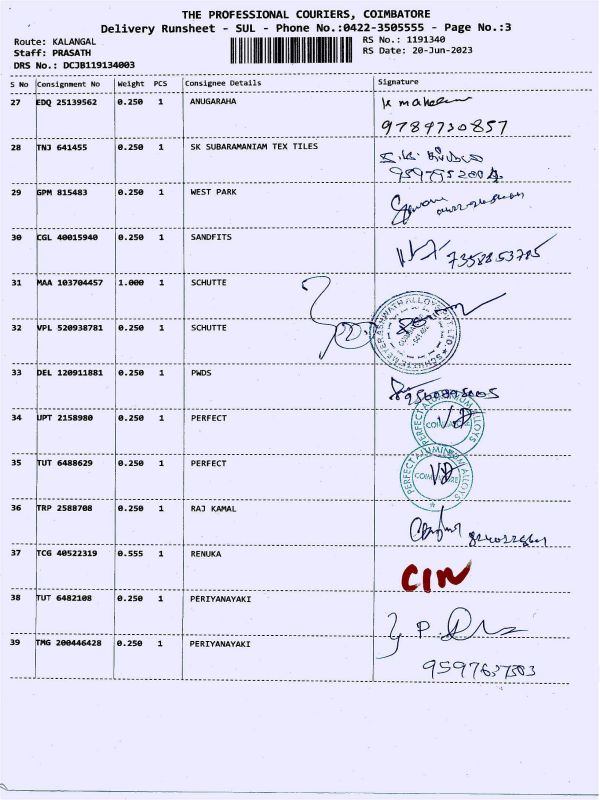 THE PROFESSIONAL COURIERS, COIMBATORE
Delivery Runsheet - SUL - Phone No.:0422-3505555 - Page No.:3
Route: KALANGAL
Staff: PRASATH
DRS No.: DCJB119134003
RS No.: 1191340
RS Date: 20-Jun-2023
S No Consignment No Weight PCS Consignee Details Signature
27 EDQ 25139562 0.250 1 ANUGARAHA
9789730857
28 TNJ 641455 0.250 1 SK SUBARAMANIAM TEX TILES
29 GPM 815483 0.250 1 WEST PARK
30 CGL 40015940 0.250 1 SANDFITS
7358853785
31 MAA 103704457 1.000 1 SCHUTTE
32 VPL 520938781 0.250 1 SCHUTTE
33 DEL 120911881 0.250 1 PWDS
34 UPT 2158980 0.250 1 PERFECT
PERFECT ALUMINIUM ALLOYS
35 TUT 6488629 0.250 1 PERFECT
PERFECT ALUMINIUM ALLOYS
36 TRP 2588708 0.250 1 RAJ KAMAL
37 TCG 40522319 0.555 1 RENUKA
CIN
38 TUT 6482108 0.250 1 PERIYANAYAKI
39 TMG 200446428 0.250 1 PERIYANAYAKI
9597637303